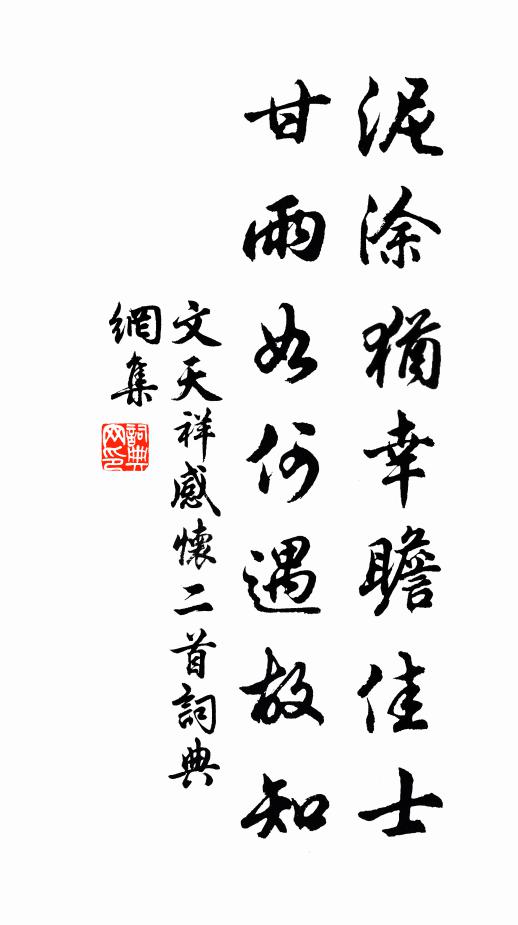 泥涂猶幸瞻佳士
甘雨如何遇故知
文天祥感懷二首詞典
網集
詞典
网印